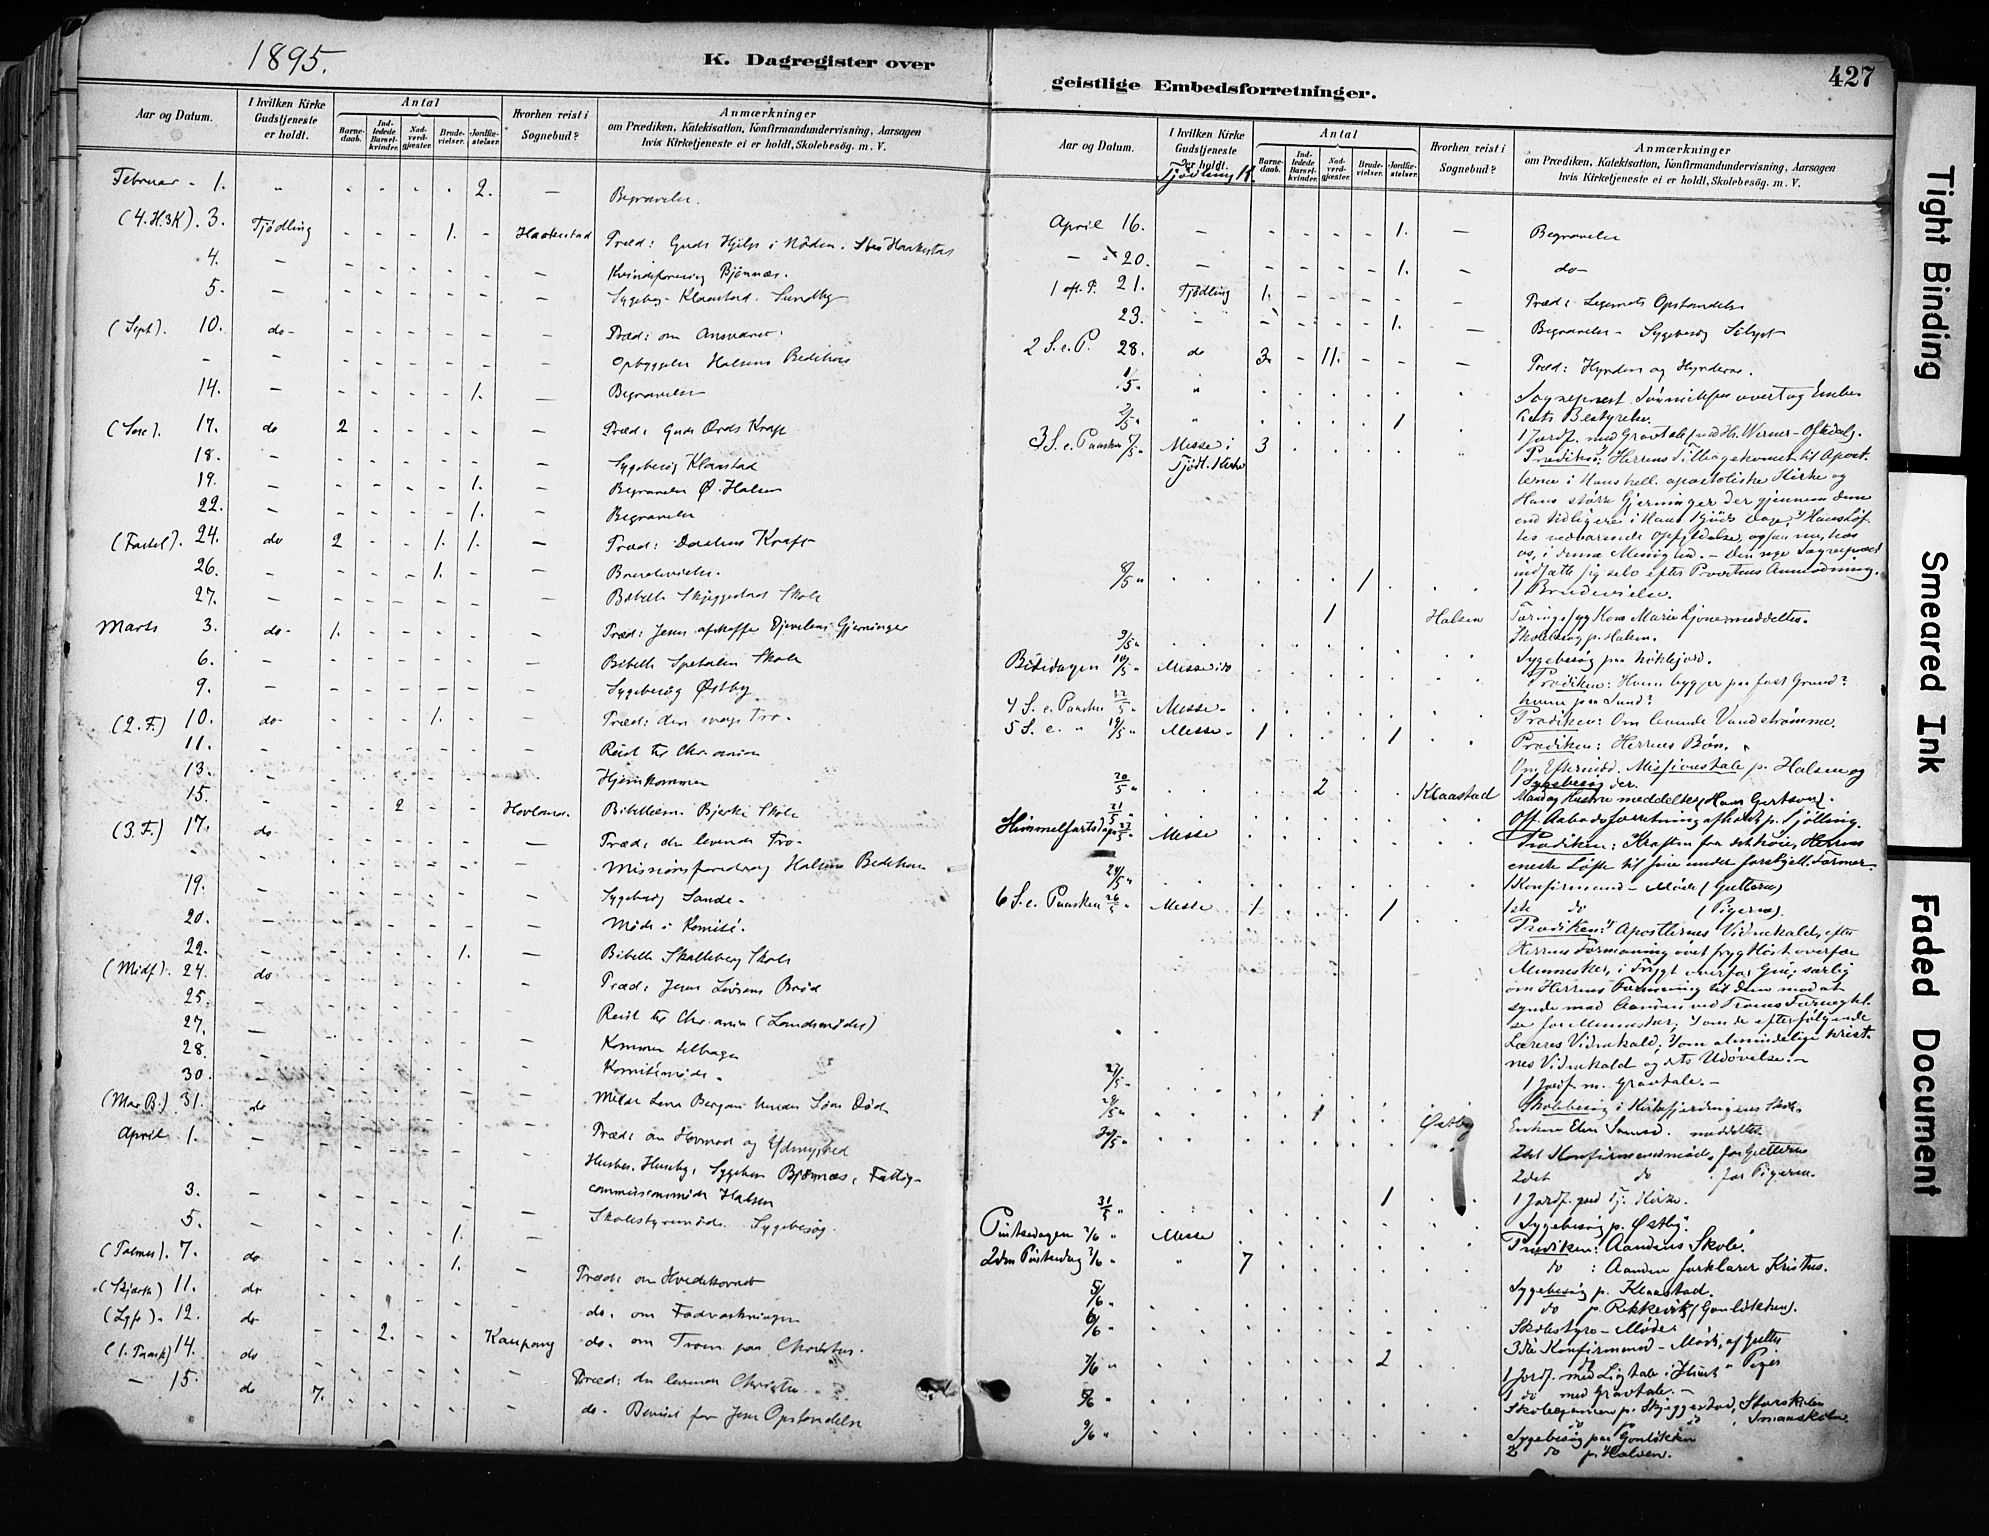 1895.
K. Dagregister over
Aar og Datum.
I hvilken Kirke Gudstjeneste er holdt.
Antal
Barnedaab.
Indledede Barselkvinder.
Nadverdgjæster.
Brudevielser.
Jordfæstelser.
Hvorhen reist i Sognebud?
Anmærkninger
om Prædiken, Katekisation, Konfirmandundervisning, Aarsagen
hvis Kirketjeneste ei er holdt, Skolebesøg. m. V.
Februar - 1. " - - - - 2. — Begravelse.
(4. H3K). 3. Tjødling - - - 1. - Haakestad Præd: Guds Hjelp i Nøden. Haakestad
4. — — Kvindeforening Bjønnæs.
5. — — Sygebes. Klaastad. Sundby
(Sept). 10. do — Præd: om Ansvaret.
- — Opbyggelse Halsens Bedehus
14. — 1. — Begravelse
(Sex). 17. do 2 — Præd: Guds Ords Kraft
18. — — Sygebesøg Klaastad
19. — 1. — Begravelse Ø. Halsen
22. — 1. — Begravelse
(Fastel). 24. do 2 - - 1. 1. — Præd: Daabens Kraft
26. — 1. — Brudevielse.
27. — — Bibell. Skjeggestad Skole
Marts 3. do 1. — Præd: Jesus afskaffer Djevelens Gjerninger
6. — — Bibell. Spetalen Skole
9. — — Sygebesøg Østby
(2. F.) 10. do 1. — Præd: den svage Tro.
11. — — Reist til Chr.ania
13. — — Hjemkommen
15. — 2 Bibellesn. Bjerke Skole
(3. F.) 17. do — Præd: den levende Tro.
- — Missionsforedrag Halsens Bedehus
19. — — Sygebesøg Sande.
20. — — Møde i Komité.
22. — 1. — Bibell. Skalleberg Skole
(Midf). 24. do — Præd: Jesus Livsens Brød
25. Reist til Chr.ania (Landsmødet)
27. — Kommen tilbage
28. — Komitémøde.
30. —
(Mar B.) 31. do Præd: om Hovmod og Ydmyghed
April 1. — Husbes. Huseby, Sygebes. Bjønnæs, Fattig-
commissionsmøde Halsen
3. — Skolestyremøde. Sygebesøg.
5. — 1.
(Palmes). 7. do 1. — Præd: om Hvedekornet
(Skjærth) 11. do do. om Fodvaskningen
(Lgfr). 12. do 2. Kaupang do. om Troen paa Christus.
(1. Paask) 14. do Præd: den levende Christus.
— 15. do 7. do. Beviset for Jesu Opstandelse
427
geistlige Embedsforretninger.
Aar og Datum.
I hvilken Kirke Gudstjeneste er holdt.
Tjødling K.
Antal
Barnedaab.
Indledede Barselkvinder.
Nadverdgjæster.
Brudevielser.
Jordfæstelser.
Hvorhen reist i Sognebud?
Anmærkninger
om Prædiken, Katekisation, Konfirmandundervisning, Aarsagen
hvis Kirketjeneste ei er holdt, Skolebesøg. m. V.
April 16. — 1. — Begravelse
— 20. — 1. — do
1 eft. P. 21. Tjødling 1. Præd: Legemets Opstandelse
23. — 1. — Begravelse — Sygebesøg
2 S. e. P. 28. do 3. - 11. Præd: Hyrden og Hyrderne.
1/5. " Sogneprest overtog Embe-
dets Bestyrelse.
2/5 " 1 1 Jordf. med Gravtale
3 S. e. Paasken 5/5 Messe i Tjødl. Kirke 3 Prædiken: Herrens Tilbagekomst til Apost-
lerne i Hans hell. apostoliske Kirke og
Hans større Gjerninger der gjennem denne
end tidligere i Hans Kjøds Dage,
os, i denne Menighed. — Den nye Sogneprest
indsatte sig selv efter Provstens Anmodning.
8/5 " 1 1 Brudevielse.
1 Halsen
9/5 Skolebesøg p. Halsen.
Sygebesøg paa
Bededagen 10/5 " Messe Prædiken: Hvem bygger paa fast Grund?
hvem paa Sand?
4 S. e. Paasken 12/5 " Messe Prædiken: Om levende Vandstrømme.
5 S. e. " 19/5 " Messe 1 1 Prædiken: Herrens Bøn.
Om Eftermidd. Missionstale p. Halsen og
1 Sygebesøg der.
20/5 " 2 Klaastad
21/5 "
Himmelfartsdagen 23/5 " Messe Prædiken: Kraften fra det høie, Herrens
eneste Løfte til sine under forskjell. Former.
24/5 " 1 Konfirmand - Møde (Gutterne)
1ste do (Pigerne)
6 S. e. Paasken 26/5 " Messe 1 1 Prædiken: Apostlernes Vidnekald, efter
Herrens Formaning
Mennesker, i Frygt overfor Gud, særlig
om Herrens Formaning til dem mod at
synde mod Aanden ved Troens Fornegtel-
se for Mennesker, som de efterfølgende
Læreres Vidnekald, som almindelige Krist-
nes Vidnekald og dets Udøvelse. —
27/5 " 1 Jordf. m. Gravtale. —
29/5 " 1 Østby Skolebesøg i Skole.
meddeltes
30/5 " 2det Konfirmandmøde for Gutterne
2det do for Pigerne.
31/5 " 1 1 Jordf. ved Tj. Kirke.
Sygebesøg p. Østby.
Pintsedagen 2/6 " Messe Prædiken: Aandens Skole.
2den Pintsedag 3/6 " " 7 do : Aanden forklarer Kristus.
5/6 " Sygebesøg p. Klaastad.
do p. Rekkevik (Gonløkken).
6/6 " Skolestyre - Møde.
3die Konfirmand - Møde, af Gutter
do " Piger
7/6 " 2 1 Jordf. med Ligtale i Huset
1 do med Gravtale. —
8/6 " Skoleexamen p. Skjeggestad, Storskolen
do p. do , Smaaskolen.
9/6 " Sygebesøg paa Gonløkken
2 do p. Halsen.
Tight Binding
Smeared Ink
Faded Document